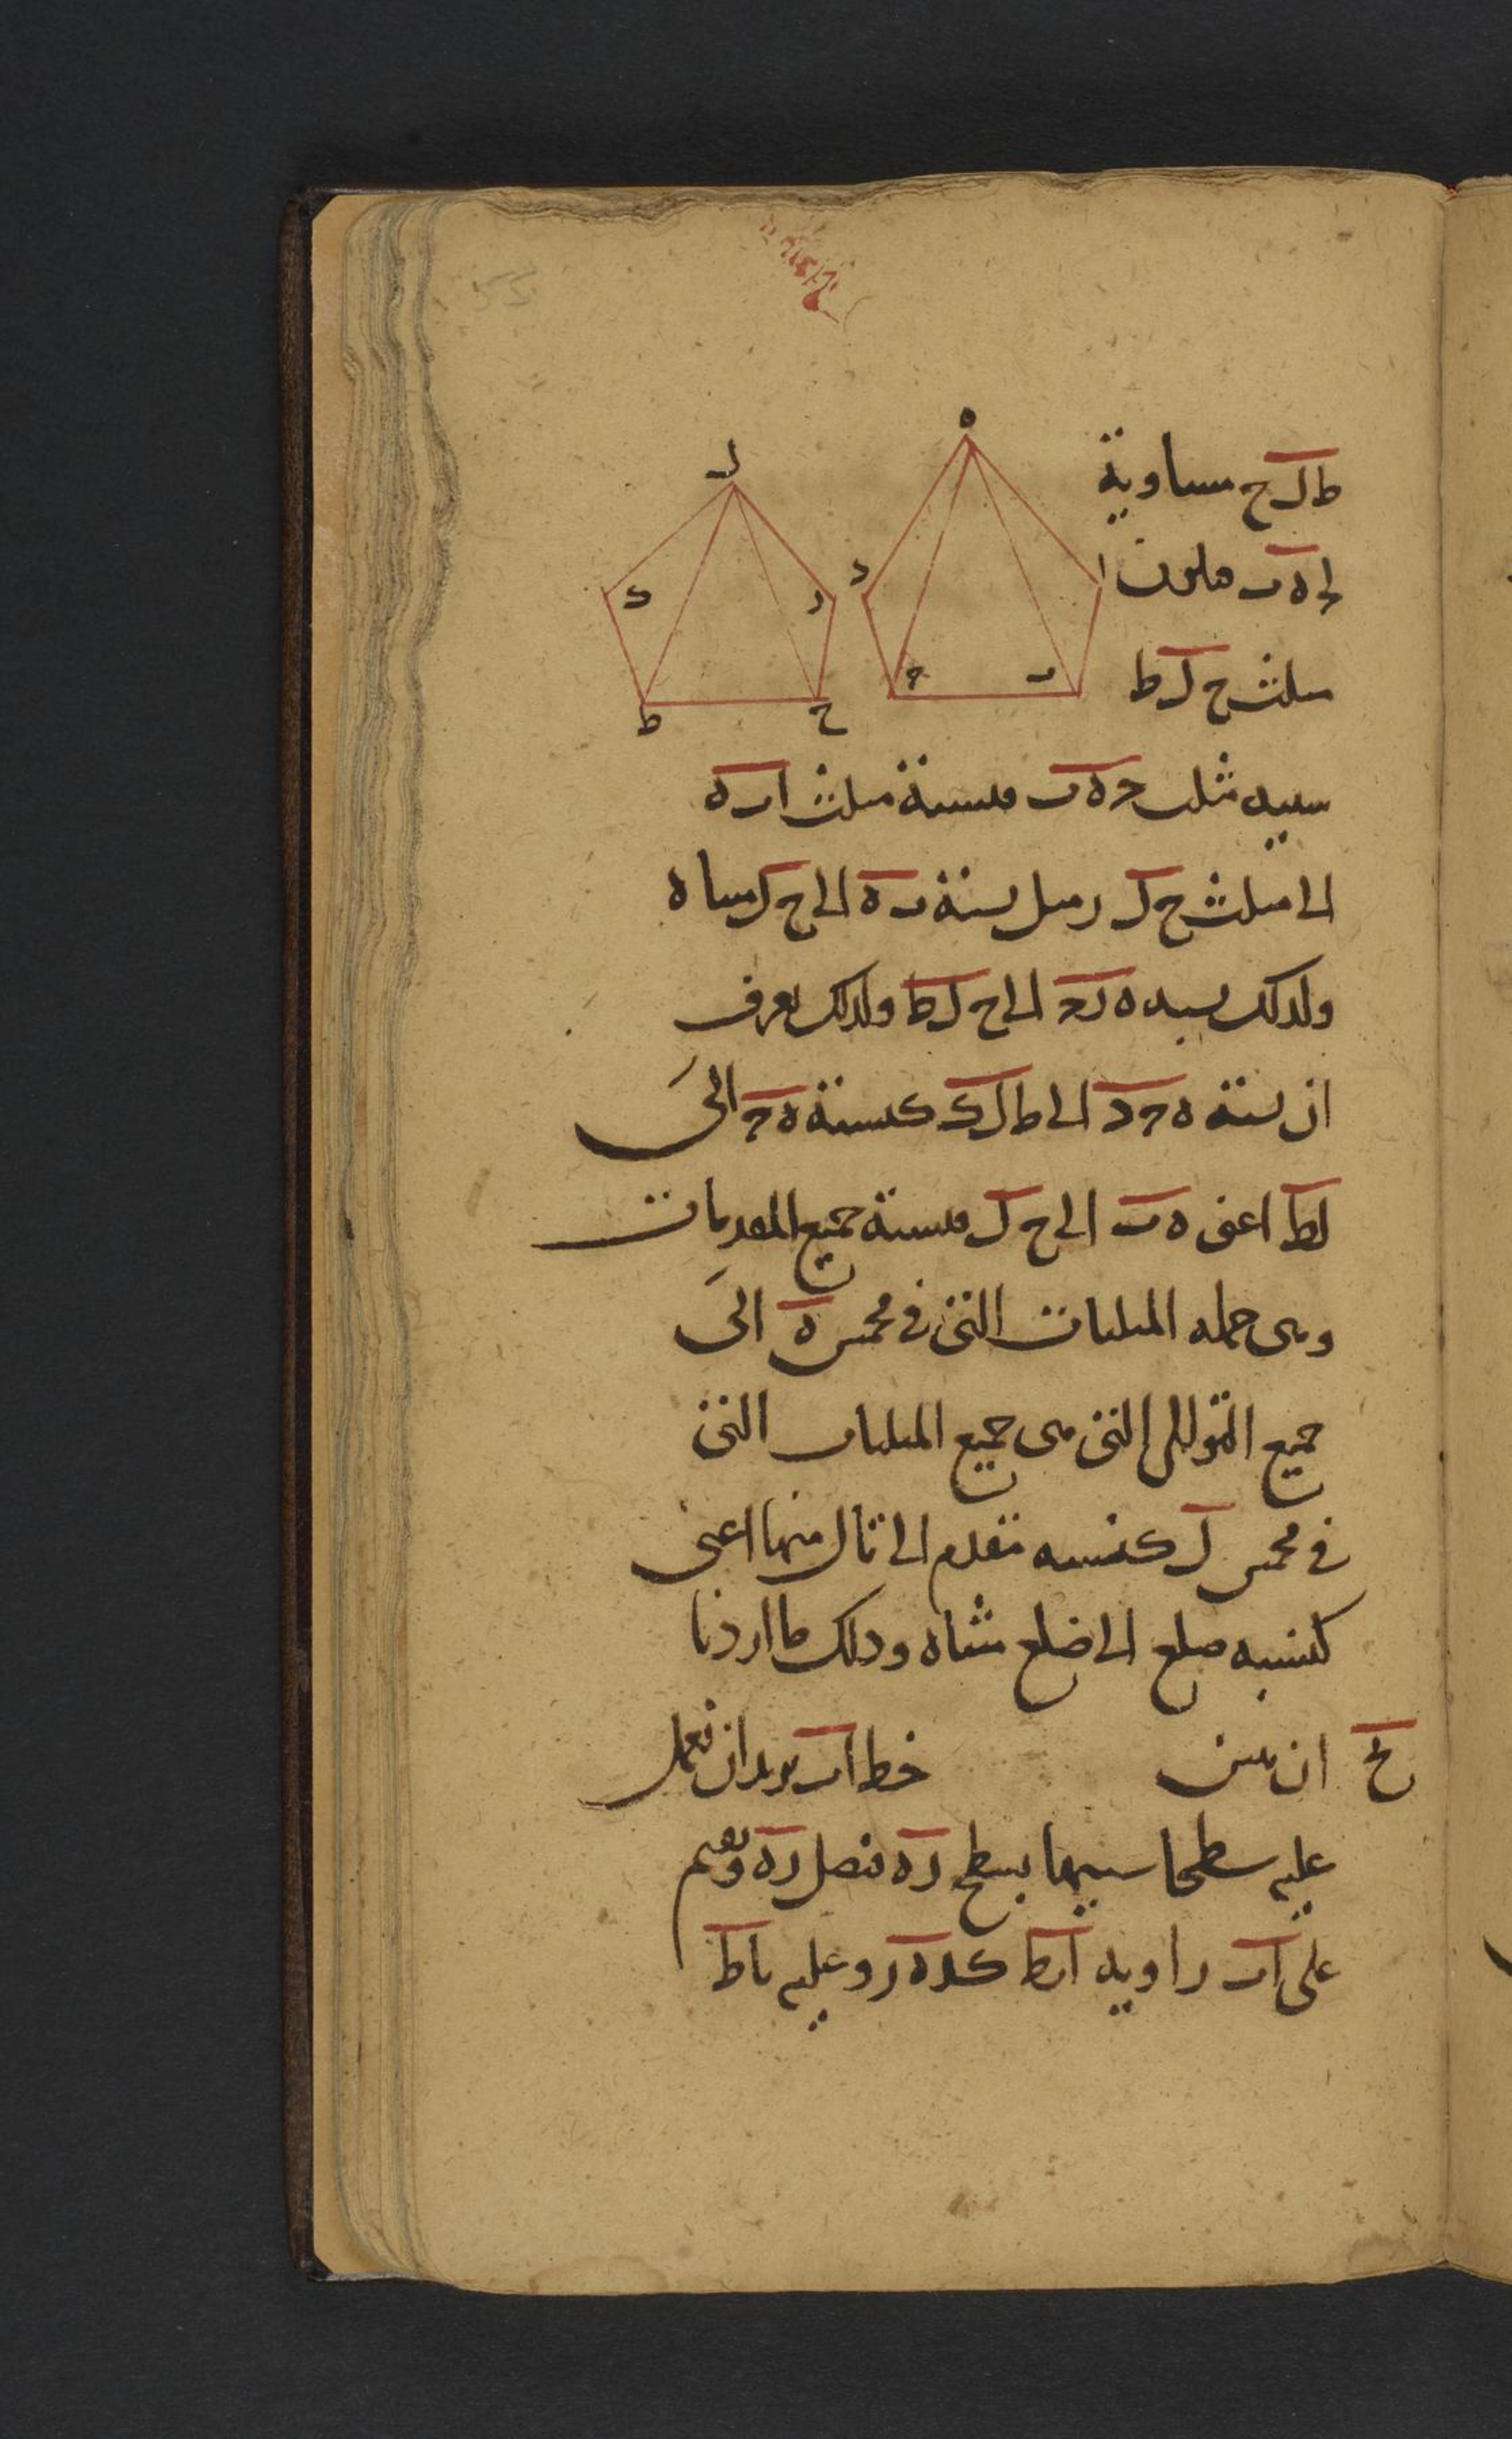 ط ل ح مساوية
لحـ ه ب فلون
مثلث ح ل ط
سبيه مثلث حـ ه ب فنسبة مثلث ا ب ه
الى مثلث ح ل ر مثل نسبة ب ه الى ح ل مثناه
ولذلك نسبه ه ب حـ الى ح ل ط ولذلك يعرف
ان نسبة ه حـ د الى ط ل ك كنسبة ه حـ الى
ل ط اعنى ه ب الى ح ل فنسبة جميع المقدمات
وهى جمله المثلثات التى فى مخمس ه الى
جميع التوالى التى هى جميع المثلثات التى
فى مخمس ل كنسبه مقدم الى تال منها اعنى
كنسبه ضلع الى ضلع مثناه وذلك ما اردنا
ان نبين
يح
خط ا ب نريد ان نعمل
عليه سطحا شبيها بسطح ر ه فنصل ر ه ونقيم
على ا ب زاويه ا ب ط كد ه ر وعليه با ط
ه
ا
د
حـ
ب
ل
ك
ر
ط
ح
55